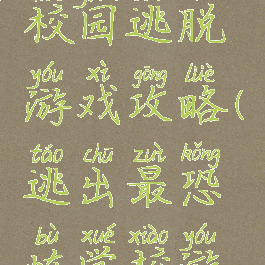 校园逃脱
yóu xì gōng lüè
游戏攻略(
táo chū zuì kǒng
逃出最恐
bù xué xiào yóu
怖学校游